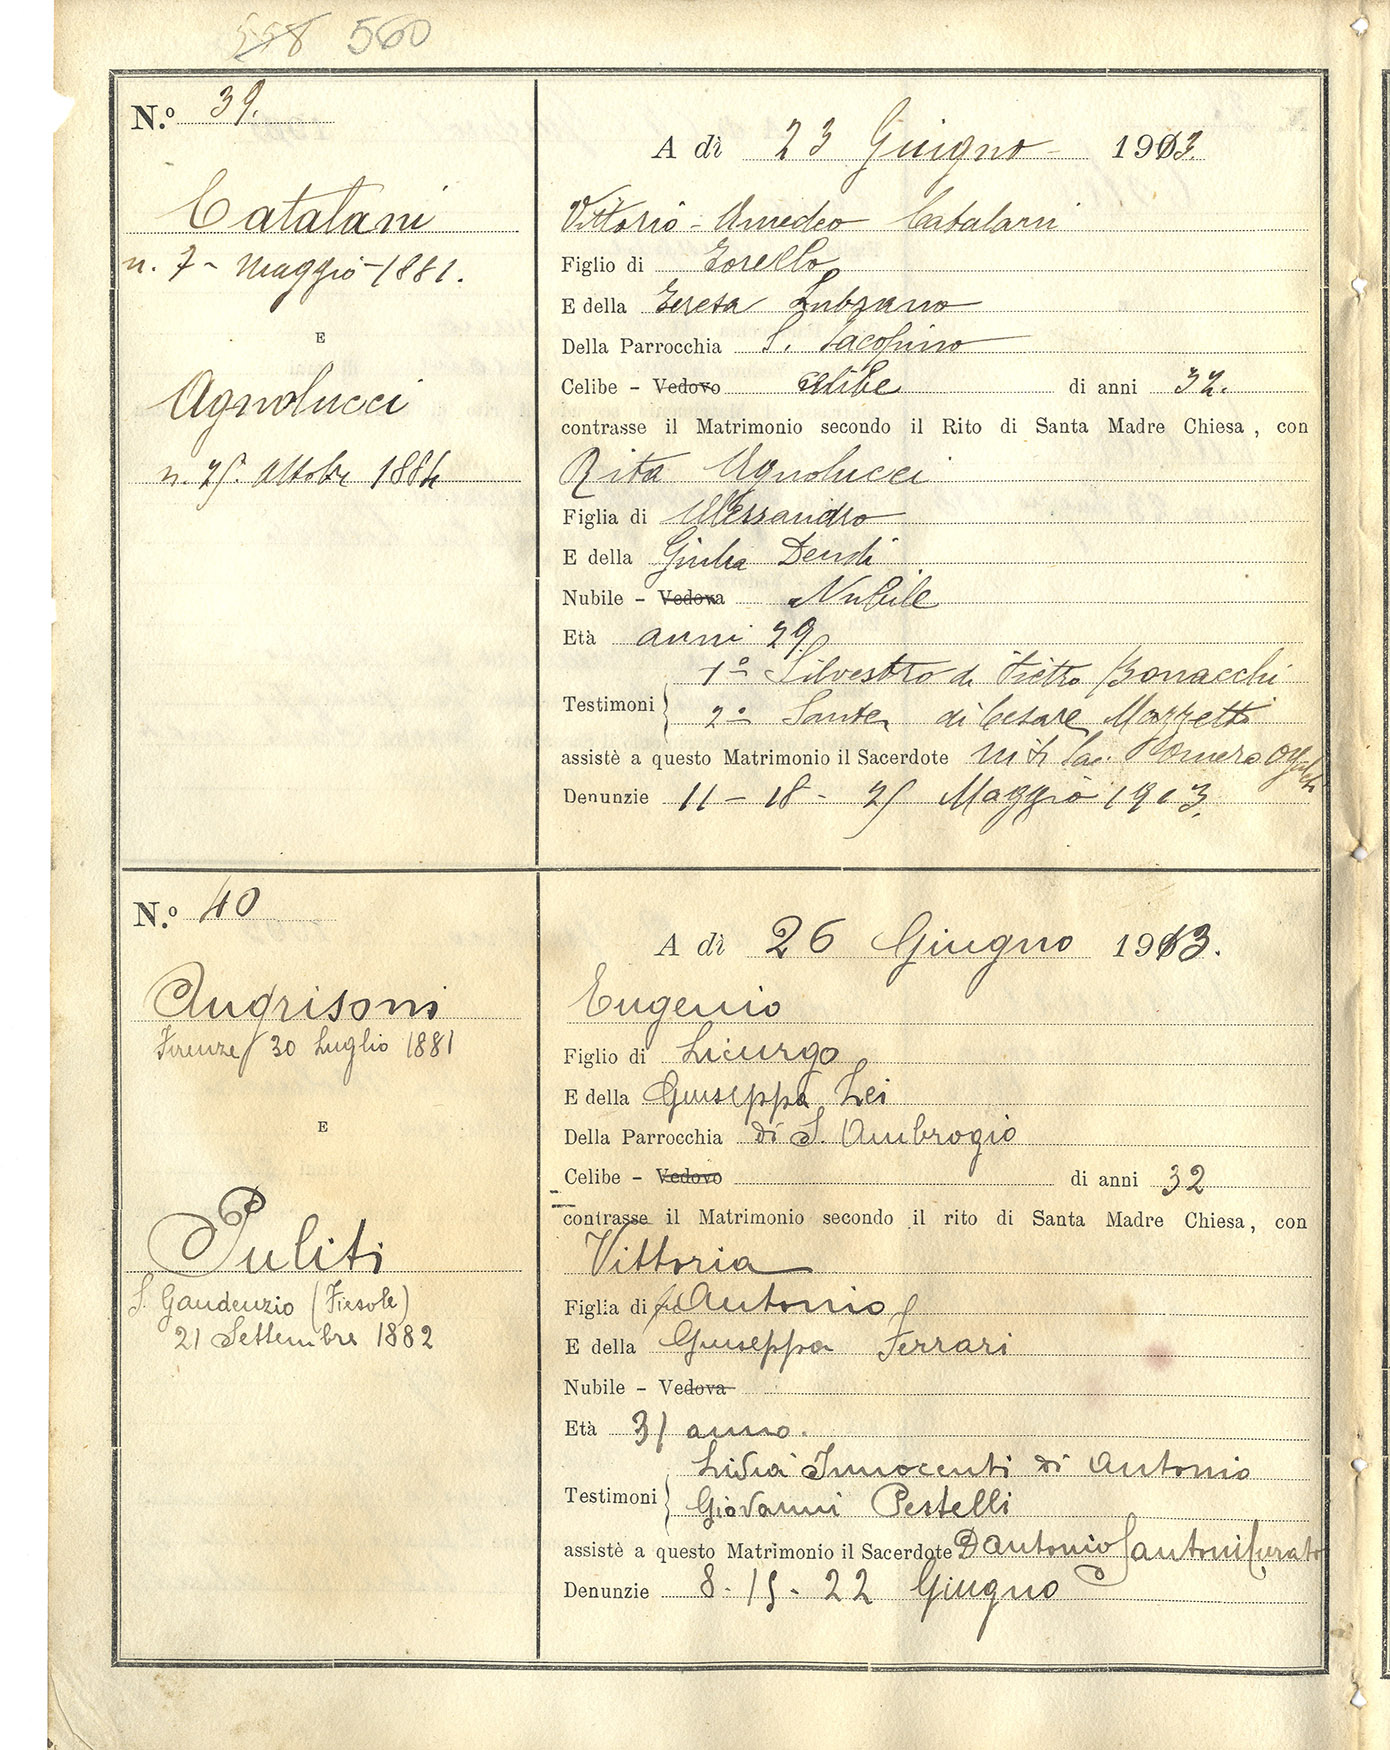 558 560
N.º 39.
Catalani
n. 7 - Maggio - 1881.
E
Agnolucci
n. 25. Ottobre 1884
A dì 23 Giugno 1913.
Vittorio - Amedeo Catalani
Figlio di Torello
E della Teresa Lubrano
Della Parrocchia S. Jacopino
Celibe - Vedovo celibe di anni 32.
contrasse il Matrimonio secondo il Rito di Santa Madre Chiesa, con
Rita Agnolucci
Figlia di Alessandro
E della Giulia Dendi
Nubile - Vedova Nubile
Età anni 29
1º Silvestro di Pietro Bonacchi
Testimoni
2º Sante di Cesare Mazzetti
assistè a questo Matrimonio il Sacerdote Sac. Romero
Denunzie 11 - 18 - 25 Maggio 1913.
N.º 40
Angrisoni
Firenze 30 Luglio 1881
E
Puliti
S. Gaudenzio (Fiesole)
21 Settembre 1882
A dì 26 Giugno 1913.
Eugenio
Figlio di Licurgo
E della Giuseppa Lei
Della Parrocchia di S. Ambrogio
Celibe - Vedovo di anni 32
contrasse il Matrimonio secondo il rito di Santa Madre Chiesa, con
Vittoria
Figlia di fu Antonio
E della Giuseppa Ferrari
Nubile - Vedova
Età 31 anno.
Lidia Innocenti di Antonio
Testimoni
Giovanni Pestelli
assistè a questo Matrimonio il Sacerdote D Antonio Santoni Curato
Denunzie 8 - 15 - 22 Giugno